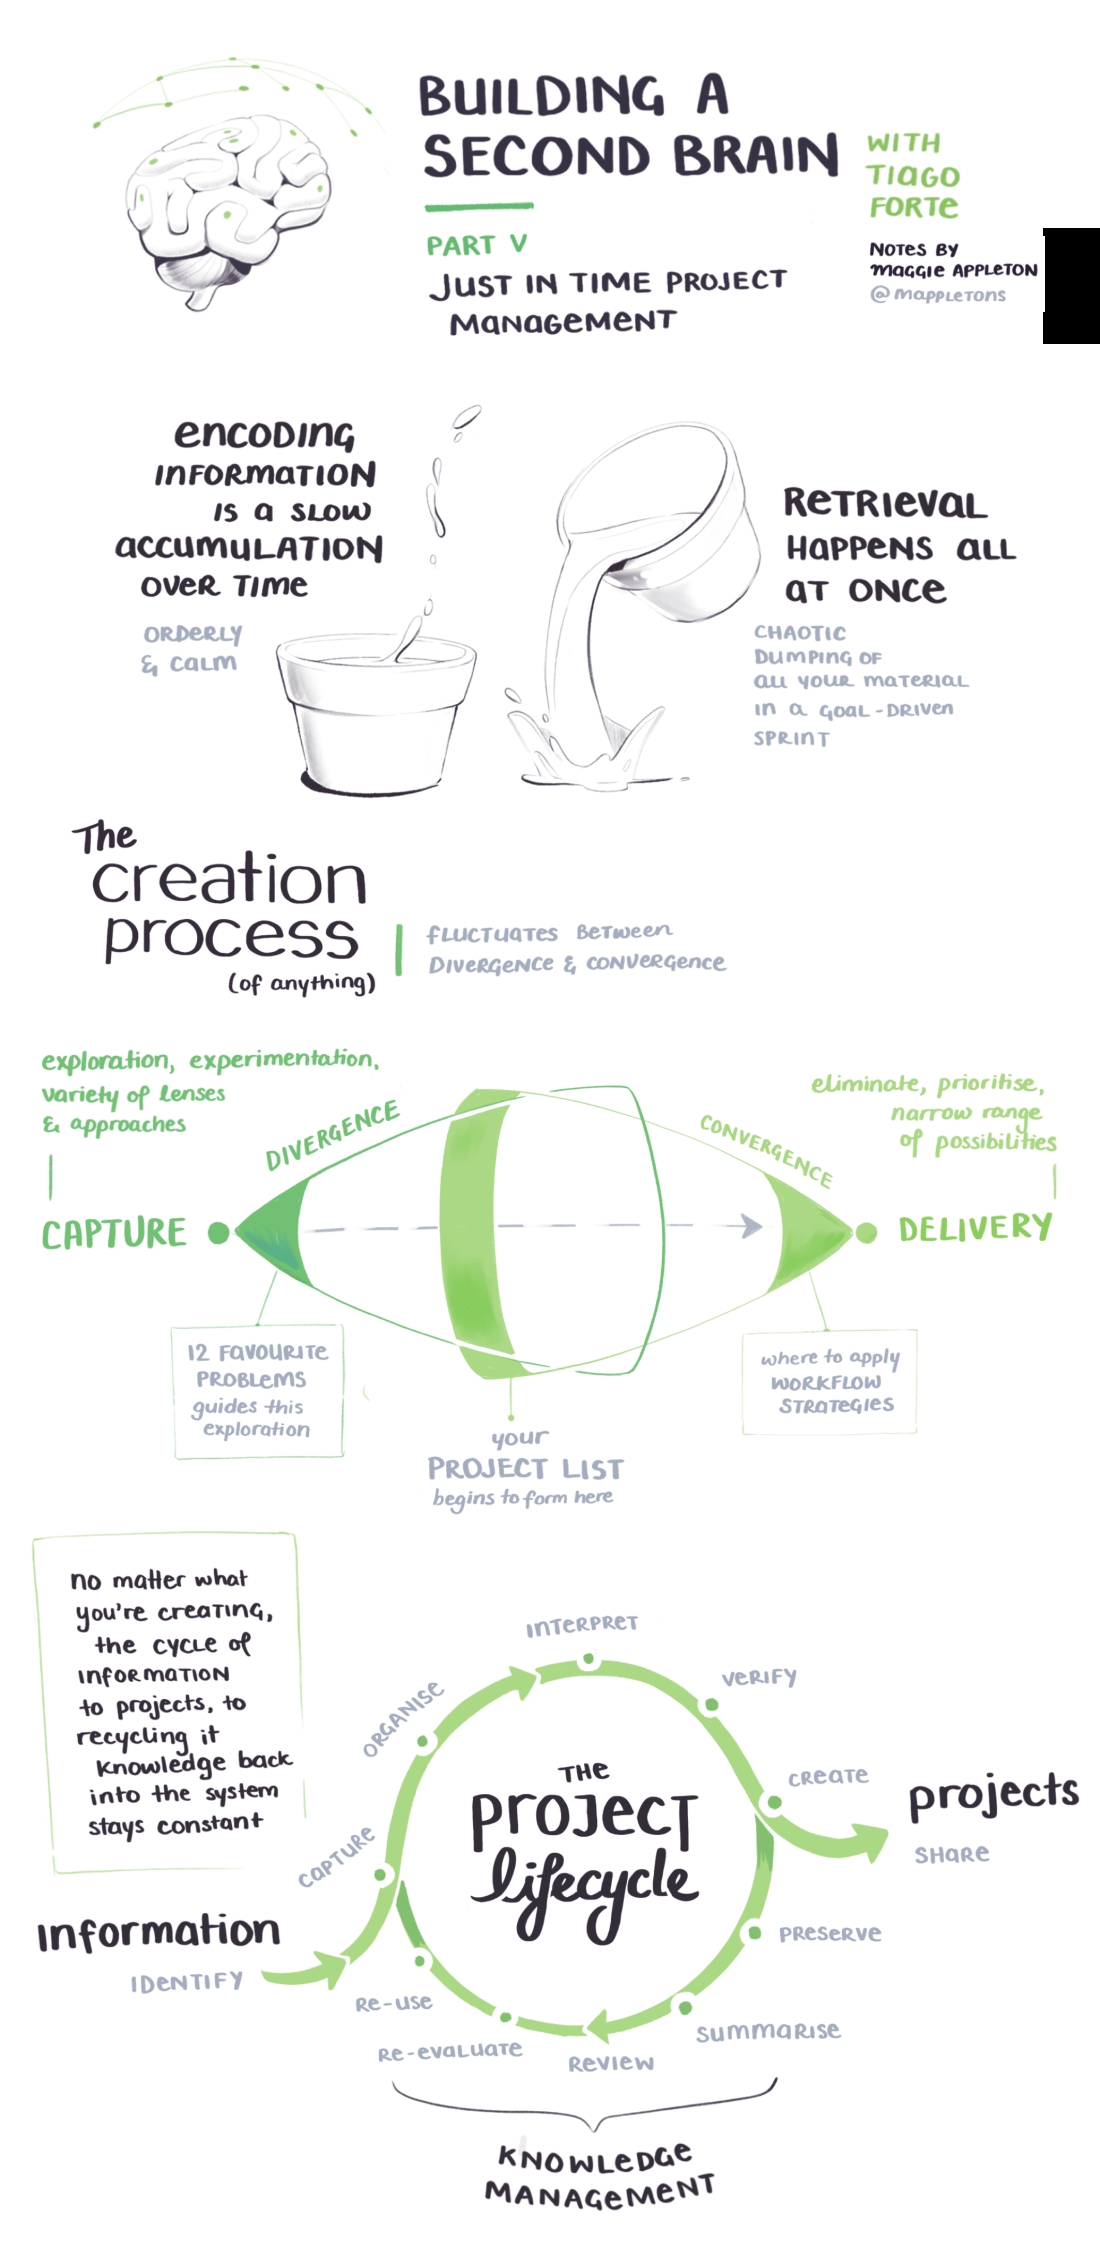 BUILDING A
SECOND BRAIN
WITH
TIAGO
FORTE
PART V
JUST IN TIME PROJECT
MANAGEMENT
NOTES BY
MAGGIE APPLETON
@MAPPLETONS
ENCODING
INFORMATION
IS A SLOW
ACCUMULATION
OVER TIME
ORDERLY
& CALM
RETRIEVAL
HAPPENS ALL
AT ONCE
CHAOTIC
DUMPING OF
ALL YOUR MATERIAL
IN A GOAL-DRIVEN
SPRINT
The
creation
process
(of anything)
FLUCTUATES BETWEEN
DIVERGENCE & CONVERGENCE
exploration, experimentation,
variety of lenses
& approaches
DIVERGENCE
CAPTURE
CONVERGENCE
eliminate, prioritise,
narrow range
of possibilities
DELIVERY
12 FAVOURITE
PROBLEMS
guides this
exploration
your
PROJECT LIST
begins to form here
where to apply
WORKFLOW
STRATEGIES
no matter what
you're creating,
the cycle of
information
to projects, to
recycling it
knowledge back
into the system
stays constant
THE
PROJECT
lifecycle
Information
IDENTIFY
CAPTURE
ORGANISE
INTERPRET
VERIFY
CREATE
projects
SHARE
PRESERVE
SUMMARISE
REVIEW
RE-EVALUATE
RE-USE
KNOWLEDGE
MANAGEMENT